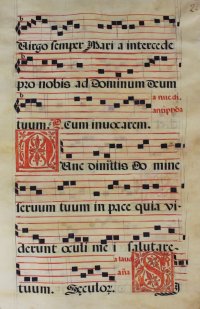 Uirgo semper Mari a intercede
pro nobis ad Dominum Deum
tuum: Ps. Cum inuocarem.
a nuc di.
antipho.
Nunc dimittis Do mine
seruum tuum in pace quia vi
derunt oculi me i salutare
tuum. Seculor.
a laud
aña
S